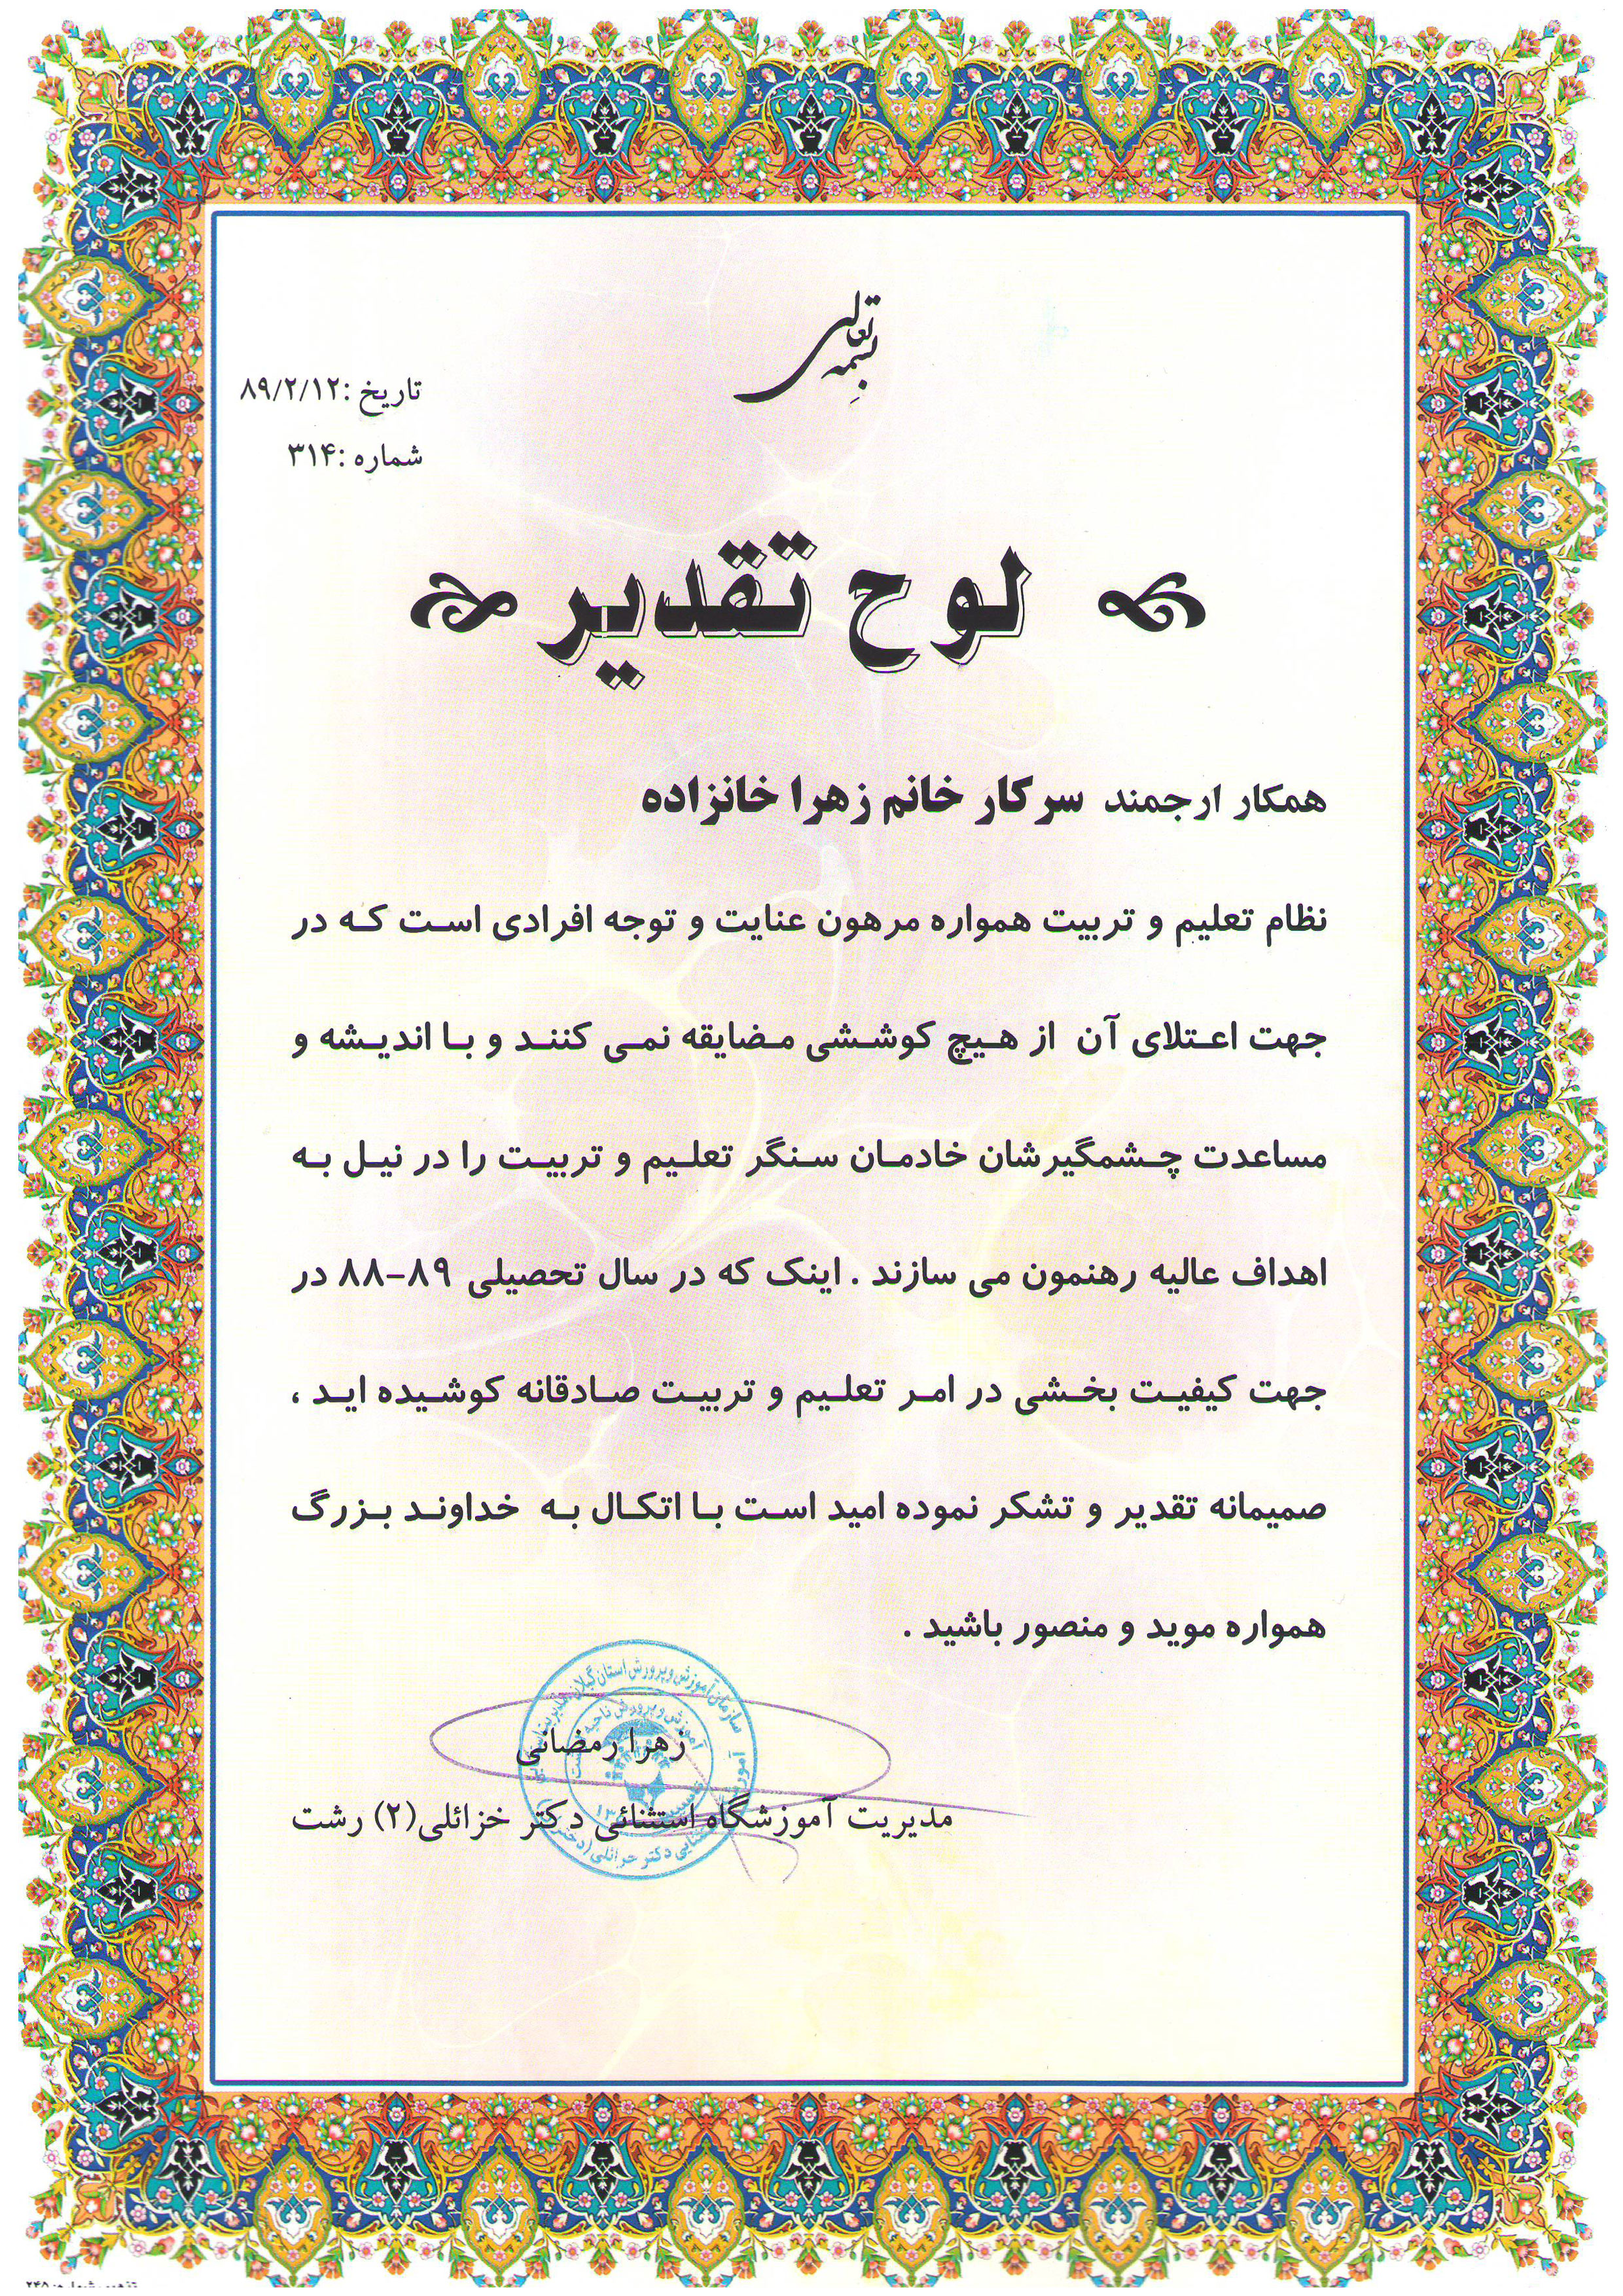 بسمه تعالی
تاریخ :۸۹/۲/۱۲
شماره :۳۱۴
لوح تقدیر
همکار ارجمند سرکار خانم زهرا خانزاده
نظام تعلیم و تربیت همواره مرهون عنایت و توجه افرادی است که در
جهت اعتلای آن از هیچ کوششی مضایقه نمی کنند و با اندیشه و
مساعدت چشمگیرشان خادمان سنگر تعلیم و تربیت را در نیل به
اهداف عالیه رهنمون می سازند . اینک که در سال تحصیلی ۸۹-۸۸ در
جهت کیفیت بخشی در امر تعلیم و تربیت صادقانه کوشیده اید ،
صمیمانه تقدیر و تشکر نموده امید است با اتکال به خداوند بزرگ
همواره موید و منصور باشید .
سازمان آموزش و پرورش استان گیلان
آموزش و پرورش ناحیه
زهرا رمضانی
مدیریت آموزشگاه استثنائی دکتر خزائلی(۲) رشت
دکتر خزائلی